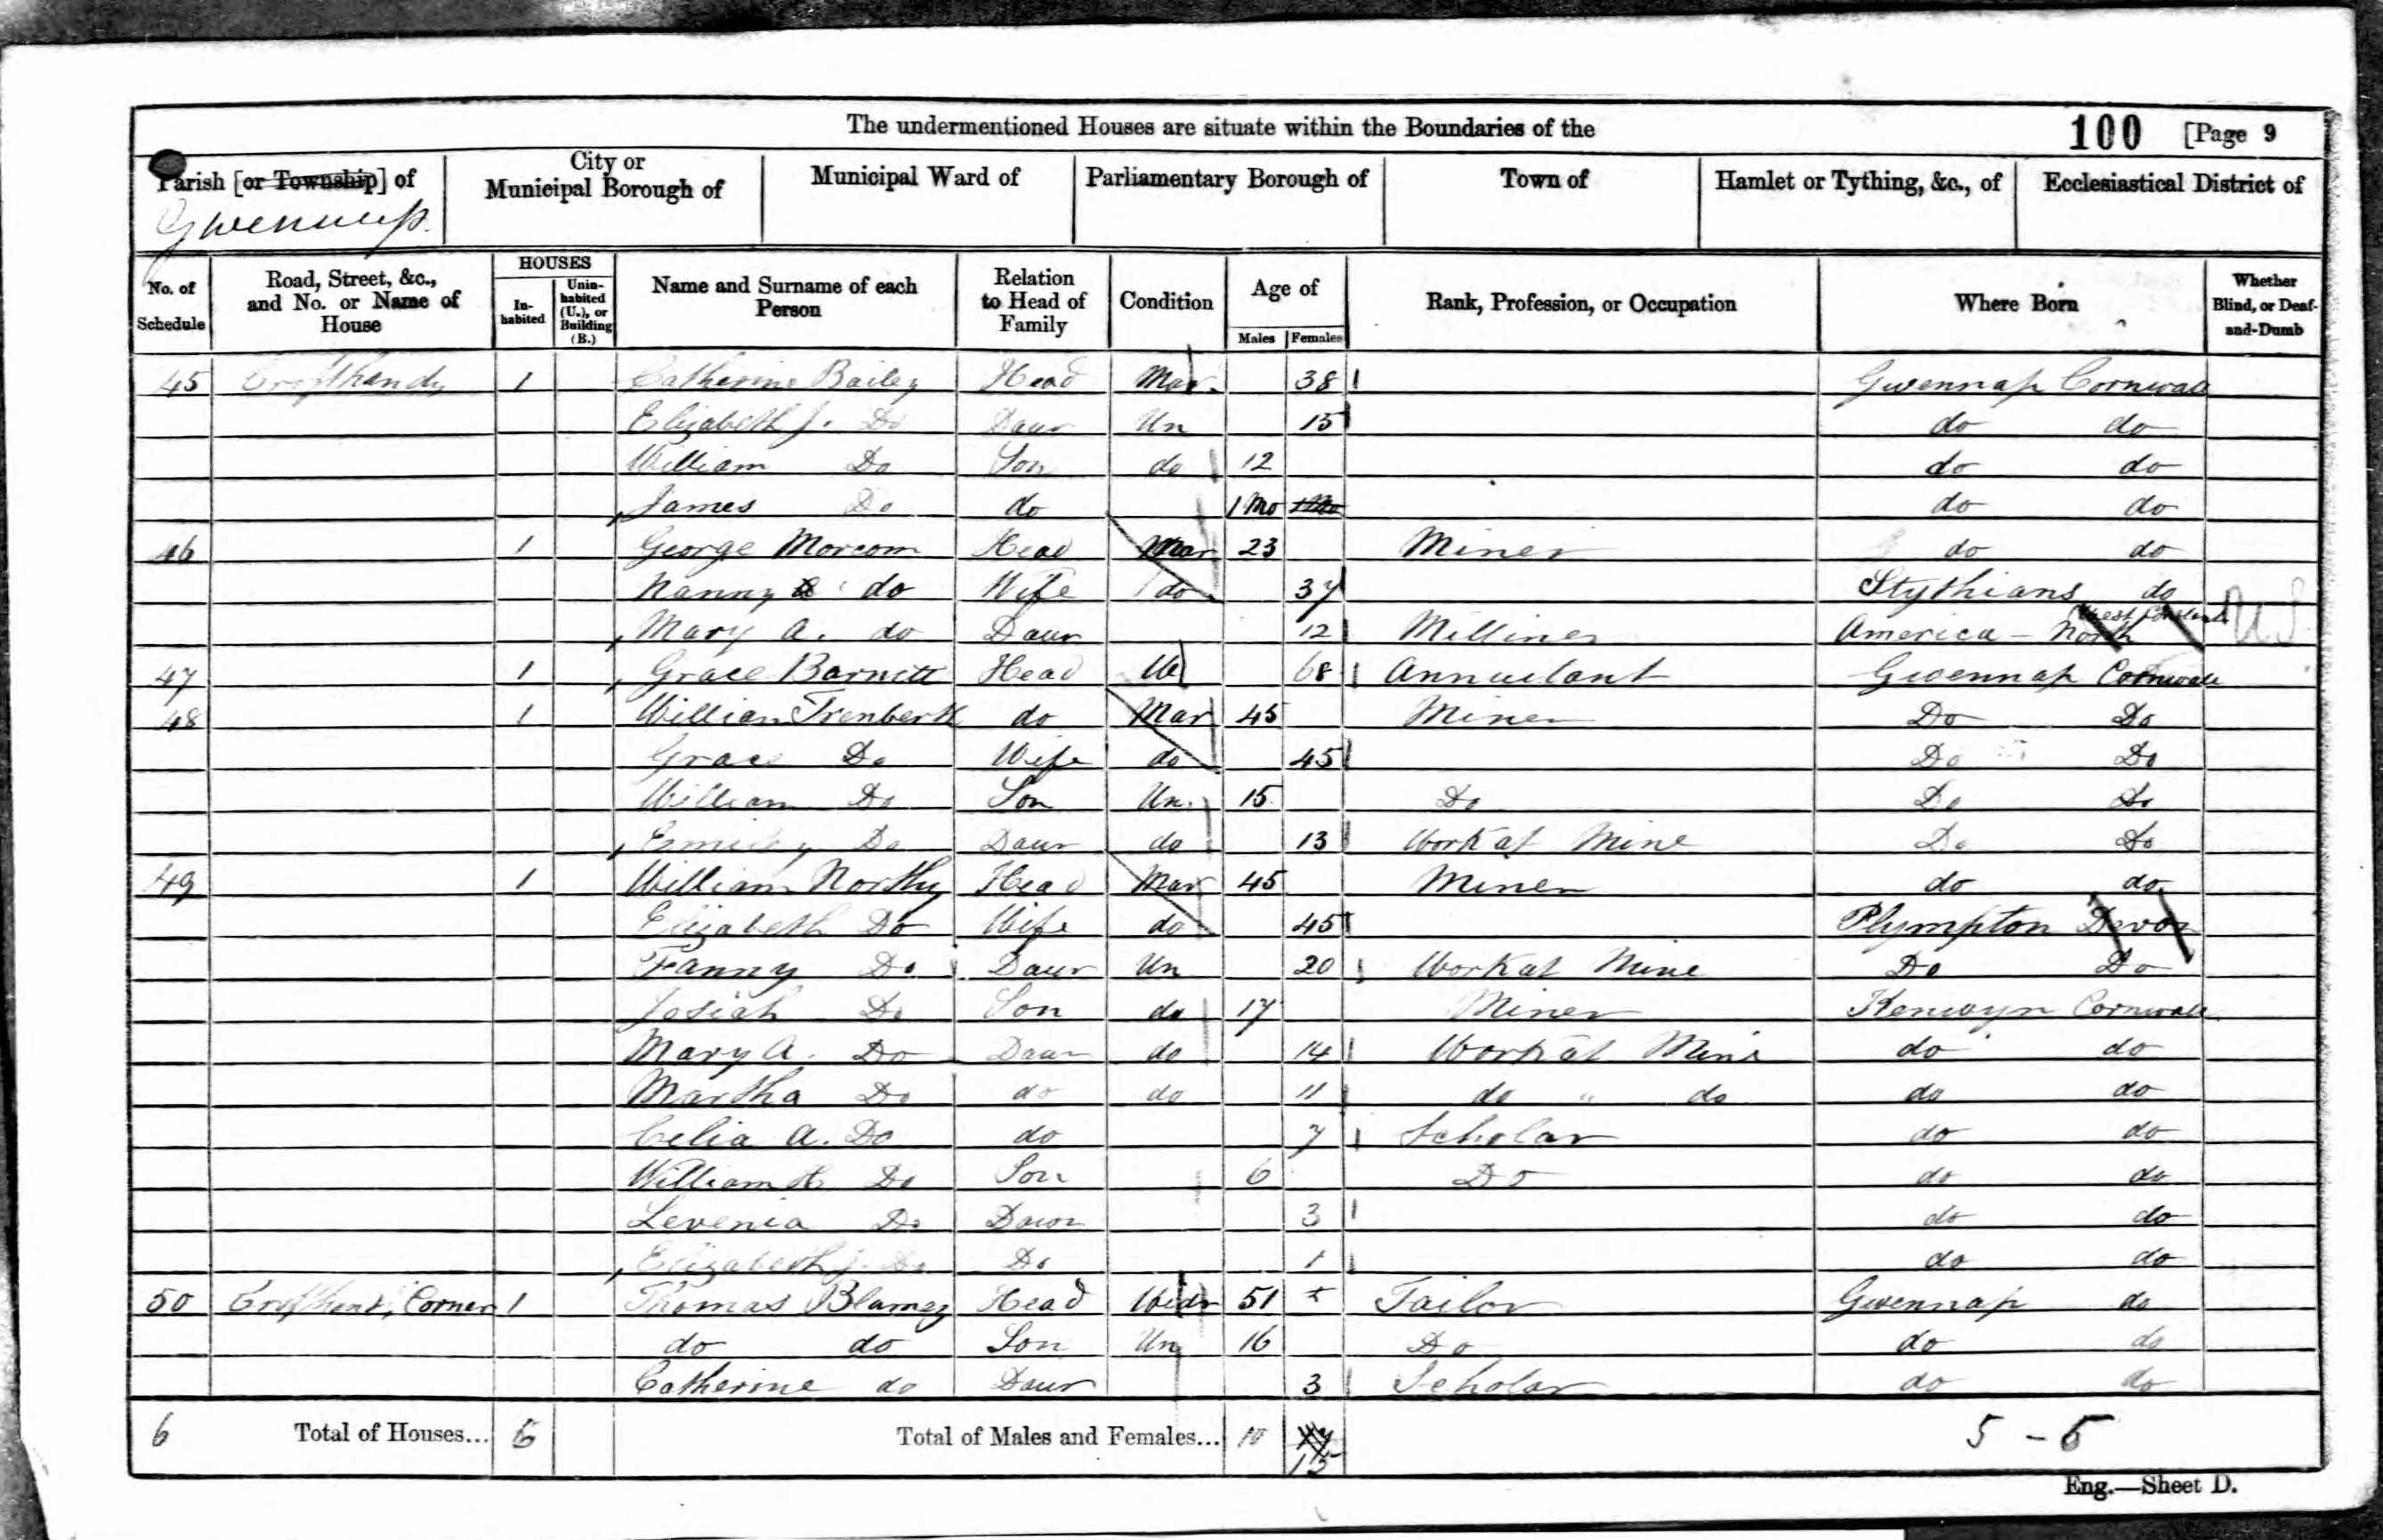 The undermentioned Houses are situate within the Boundaries of the
100 [Page 9
Parish [or Township] of
Gwennap.
City or Municipal Borough of
Municipal Ward of
Parliamentary Borough of
Town of
Hamlet or Tything, &c., of
Ecclesiastical District of
No. of Schedule
Road, Street, &c., and No. or Name of House
HOUSES
In-habited
Unin-habited (U.), or Building (B.)
Name and Surname of each Person
Relation to Head of Family
Condition
Age of
Males
Females
Rank, Profession, or Occupation
Where Born
Whether Blind, or Deaf-and-Dumb
45 Crofthandy 1 Catherine Bailey Head Mar. 38 Gwennap Cornwall
Elizabeth J. Do Daur Un 15 do do
William Do Son do 12 do do
James Do do 1 Mo do do
46 1 George Morcom Head Mar 23 Miner do do
Nanny do Wife do 37 Stythians do
Mary A. do Daur 12 Milliner America - North
47 1 Grace Barnett Head W 68 Annuitant Gwennap Cornwall
48 1 William Trenberth do Mar 45 Miner Do Do
Grace Do Wife do 45 Do Do
William Do Son Un. 15 Do Do Do
Emiley Do Daur do 13 Work at Mine Do Do
49 1 William Northy Head Mar 45 Miner do do
Elizabeth Do Wife do 45 Plympton Devon
Fanny Do Daur Un 20 Work at Mine Do Do
Josiah Do Son do 17 Miner Kenwyn Cornwall
Mary A. Do Daur do 14 Work at Mine do do
Martha Do do do 11 do " do do do
Celia A. Do do 7 Scholar do do
William H Do Son 6 Do do do
Levenia Do Daur 3 do do
Elizabeth J. Do Do 1 do do
50 Corner 1 Thomas Blamey Head Widr 51 Tailor Gwennap do
do do Son Un 16 Do do do
Catherine do Daur 3 Scholar do do
6 Total of Houses... 6 Total of Males and Females... 10 15 5 - 5
Eng.—Sheet D.